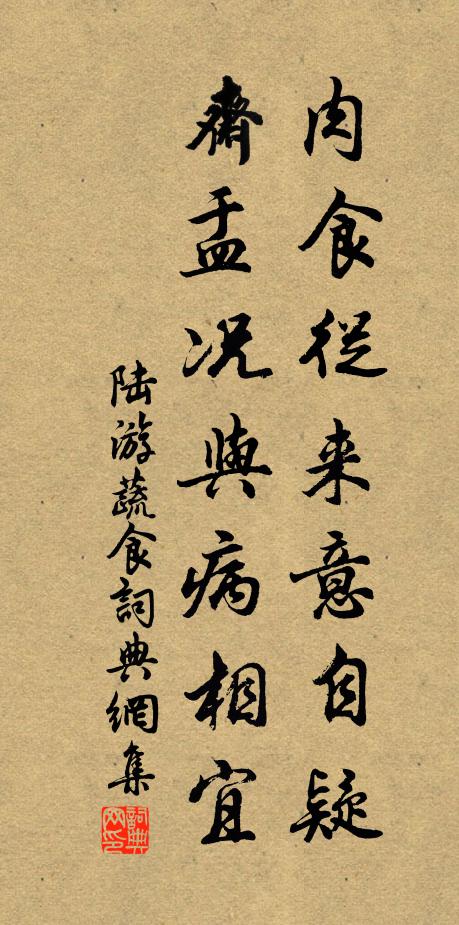 肉食從来意自疑
齋盂况與病相宜
陆游蔬食詞典網集
詞典网印